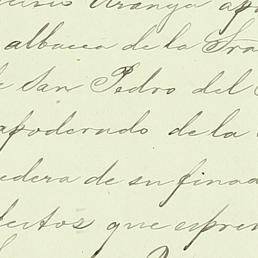 Aranga apo
albacea de la Tra
de San Pedro del
apoderado de la
edera de su finad
fectos que espre